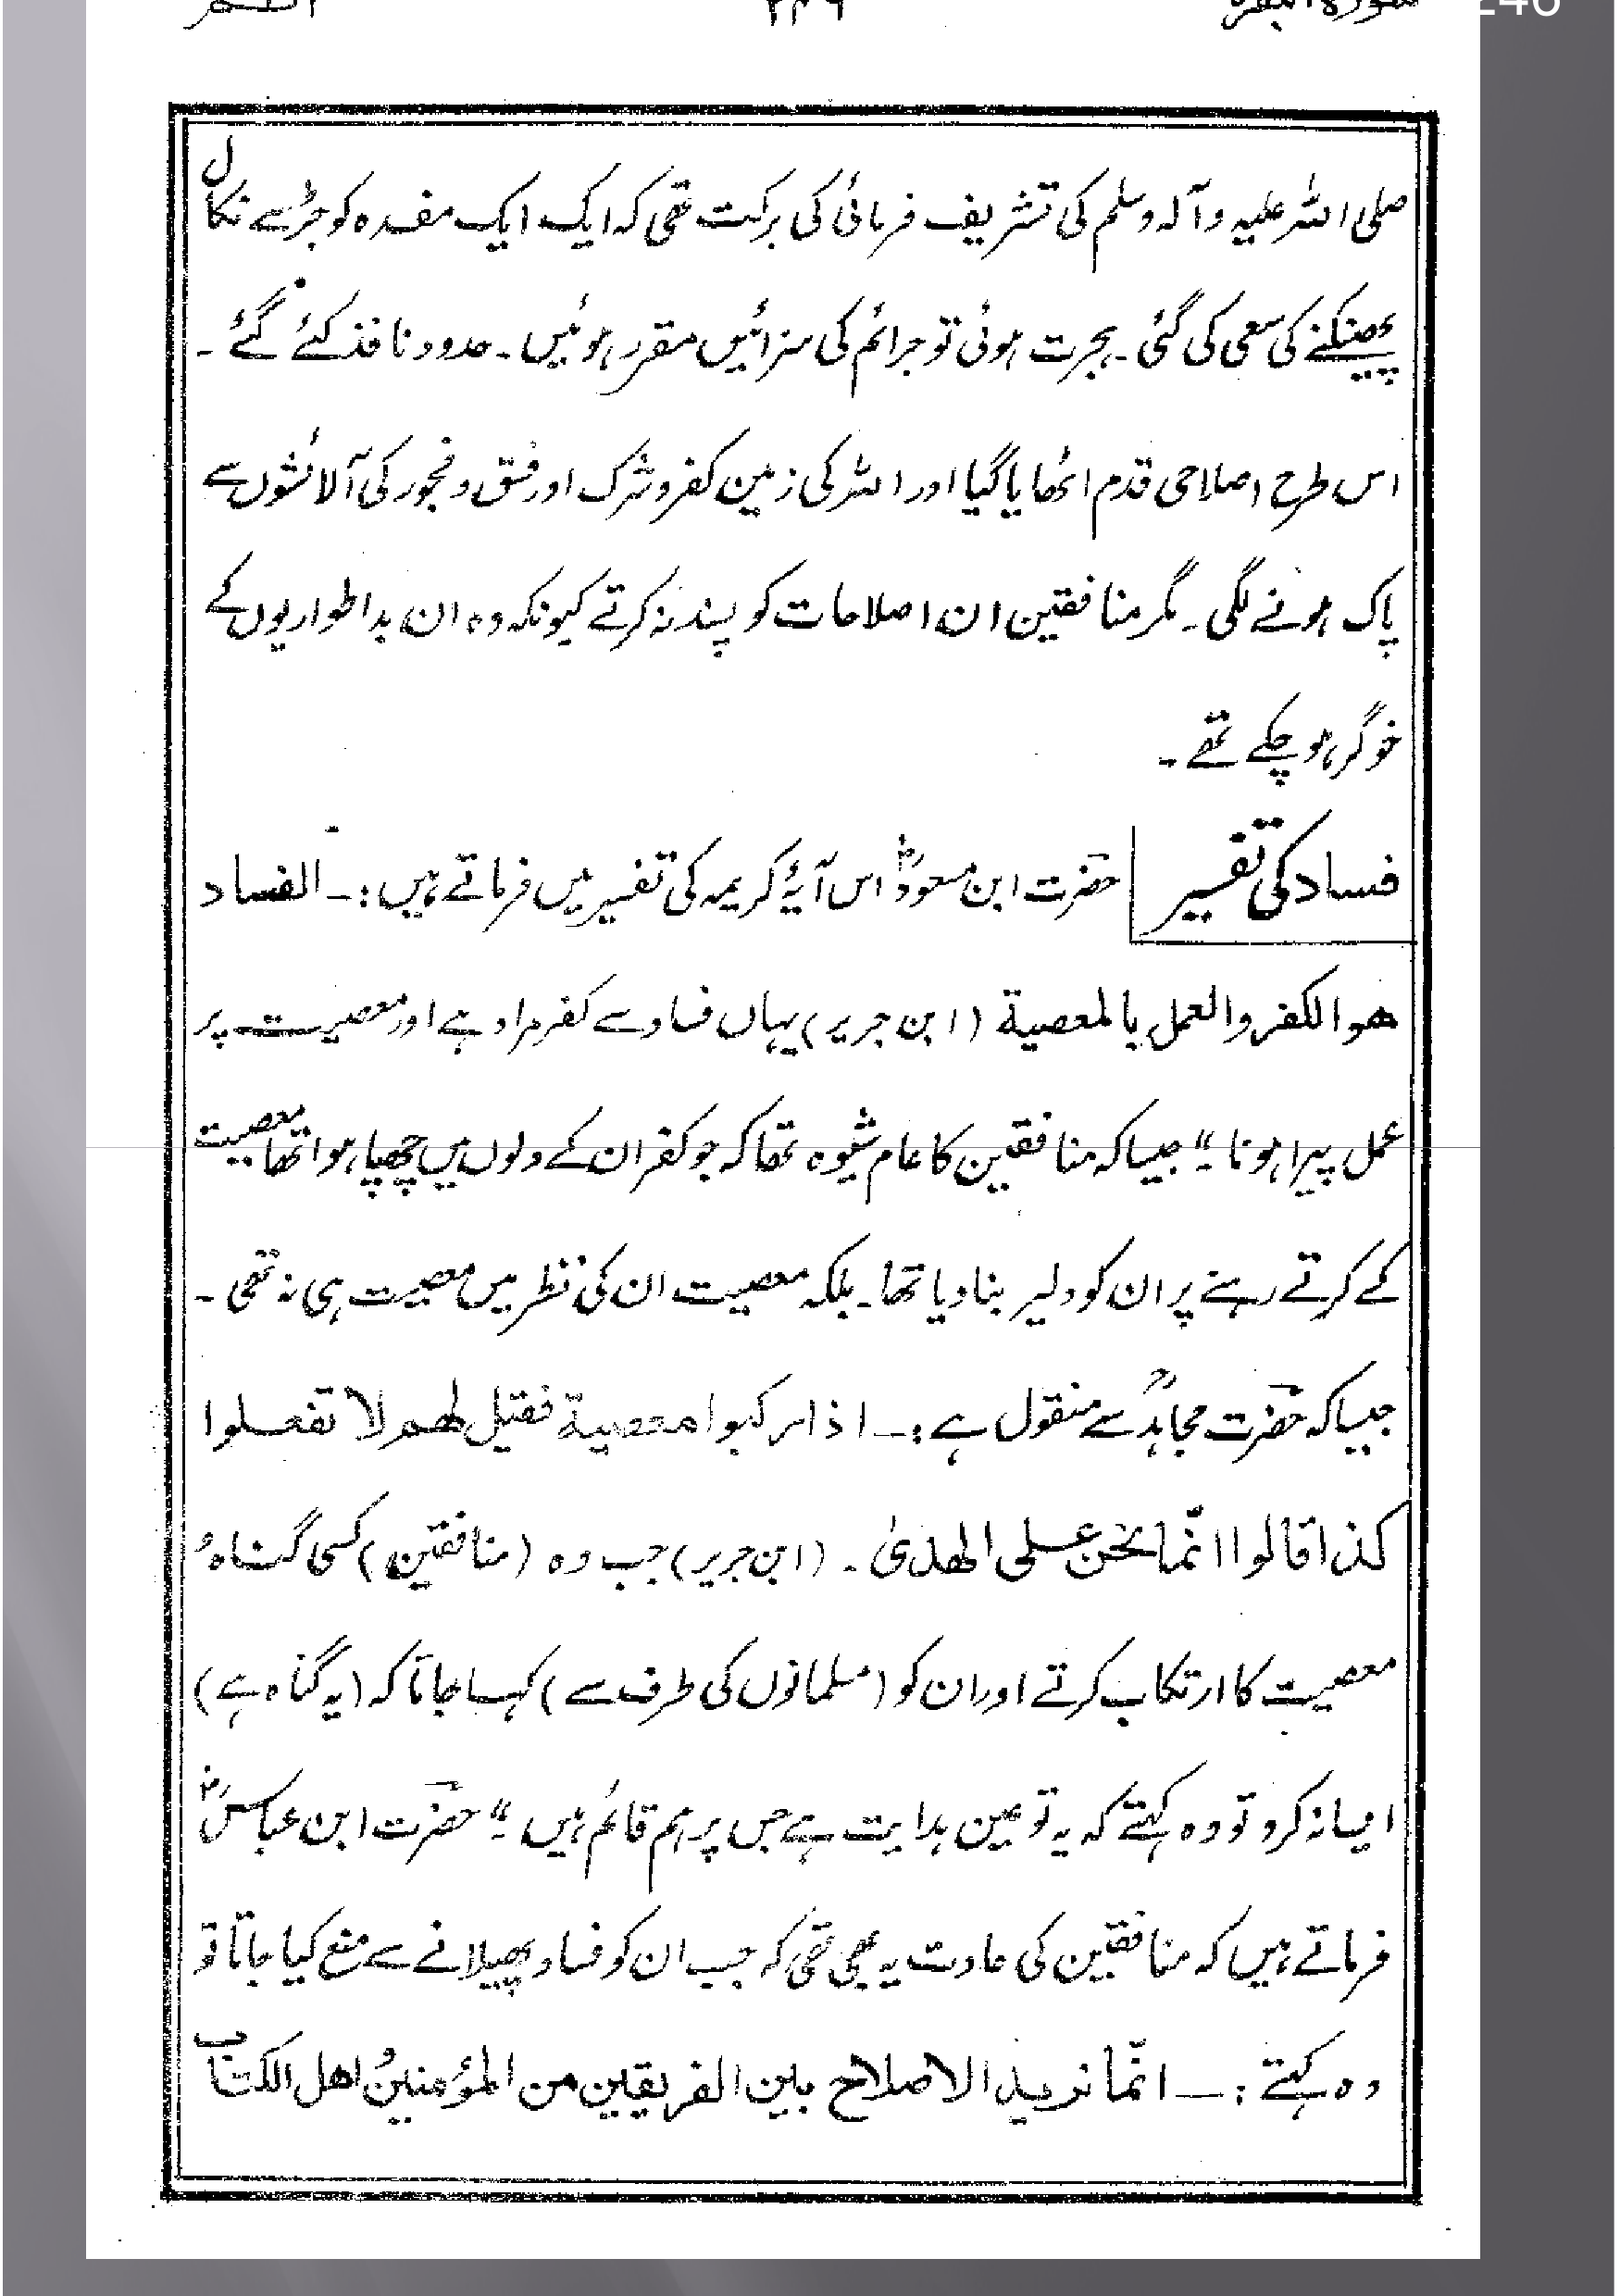 246
سورۃ البقرۃ ۲۴۶ الٓمٓ
صلی اللہ علیہ وآلہ وسلم کی تشریف فرمائی کی برکت تھی کہ ایک ایک مفسدہ کو جڑ سے نکال
پھینکنے کی سعی کی گئی ۔ ہجرت ہوئی تو جرائم کی سزائیں مقرر ہوئیں ۔ حدود نافذ کئے گئے ۔
اس طرح اصلاحی قدم اٹھایا گیا اور اللہ کی زمین کفر و شرک اور فسق و فجور کی آلائشوں سے
پاک ہونے لگی ۔ مگر منافقین ان اصلاحات کو پسند نہ کرتے کیونکہ وہ ان بد اطواریوں کے
خوگر ہو چکے تھے ۔
فساد کی تفسیر حضرت ابن مسعودؓ اس آیۂ کریمہ کی تفسیر میں فرماتے ہیں :۔ الفساد
ھو الکفر والعمل بالمعصیة (ابن جریر) یہاں فساد سے کفر مراد ہے اور معصیت پر
عمل پیرا ہونا ۔“ جیسا کہ منافقین کا عام شیوہ تھا کہ جو کفر ان کے دلوں میں چھپا ہوا تھا معصیت
کے کرتے رہنے پر ان کو دلیر بنا دیا تھا ۔ بلکہ معصیت ان کی نظر میں معصیت ہی نہ تھی ۔
جیسا کہ حضرت مجاہدؒ سے منقول ہے :۔ اذا رکبوا معصیة فقیل لھم لا تفعلوا
کذا قالوا انّما نحن علی الھدیٰ ۔ (ابن جریر) جب وہ (منافقین) کسی گناہ و
معصیت کا ارتکاب کرتے اور ان کو (مسلمانوں کی طرف سے) کہا جاتا کہ (یہ گناہ ہے)
ایسا نہ کرو تو وہ کہتے کہ یہ تو عین ہدایت ہے جس پر ہم قائم ہیں ۔“ حضرت ابن عباسؓ
فرماتے ہیں کہ منافقین کی عادت یہ بھی تھی کہ جب ان کو فساد پھیلانے سے منع کیا جاتا تو
وہ کہتے :۔ انّما نرید الاصلاح بین الفریقین من المؤمنین و اھل الکتاب